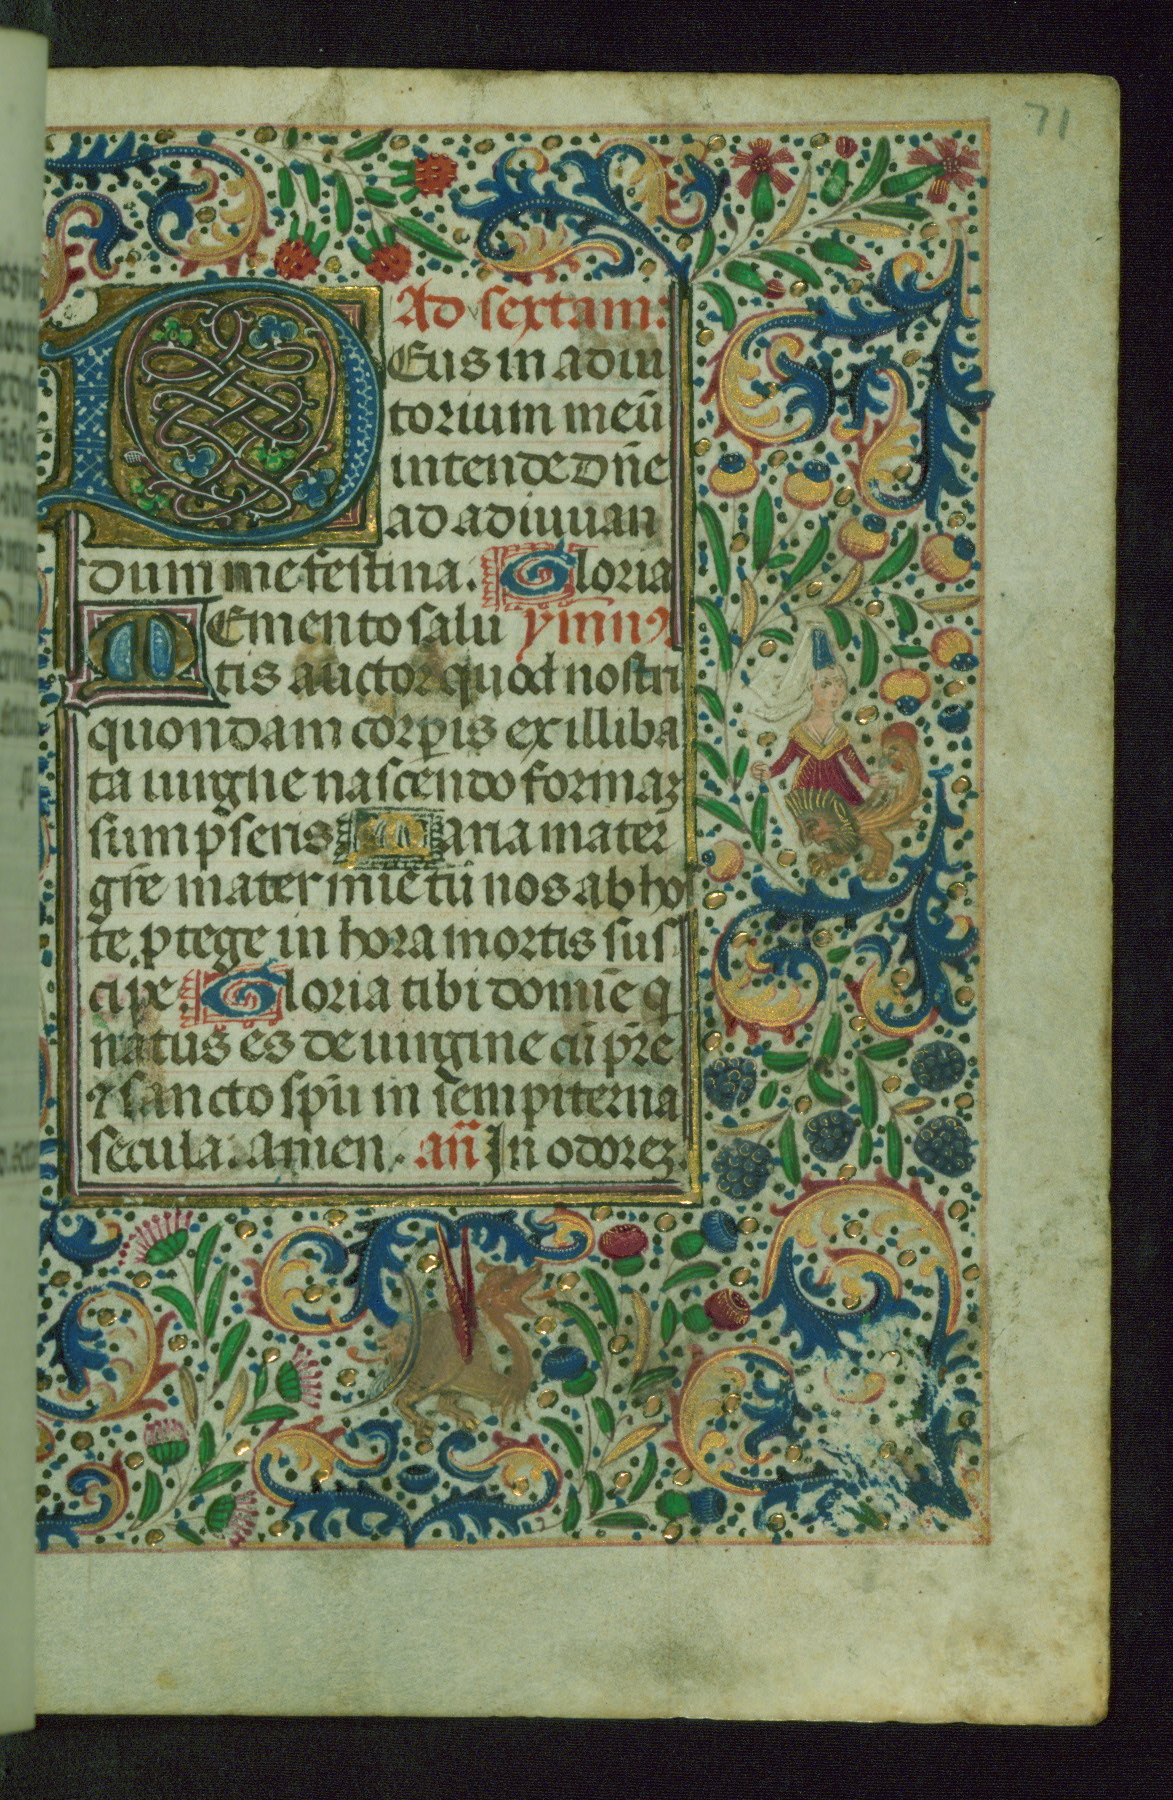 71
Ad sextam:
DEus in adiu
torium meū
intende Dn̄e
ad adiuuan
dum me festina. Gloria
MEmento salu ymnꝰ
tis auctor quod nostri
quondam corꝑis ex illiba
ta uirgīe nascendo formaꝫ
sumpseris Maria mater
gr̄e mater mīe tū nos ab hos
te ꝓtege in hora mortis sus
cipe Gloria tibi domīe q
natus es de uirgine cū pr̄e
⁊ sancto spū in sempiterna
secula. Amen. an̄ In odoreꝫ